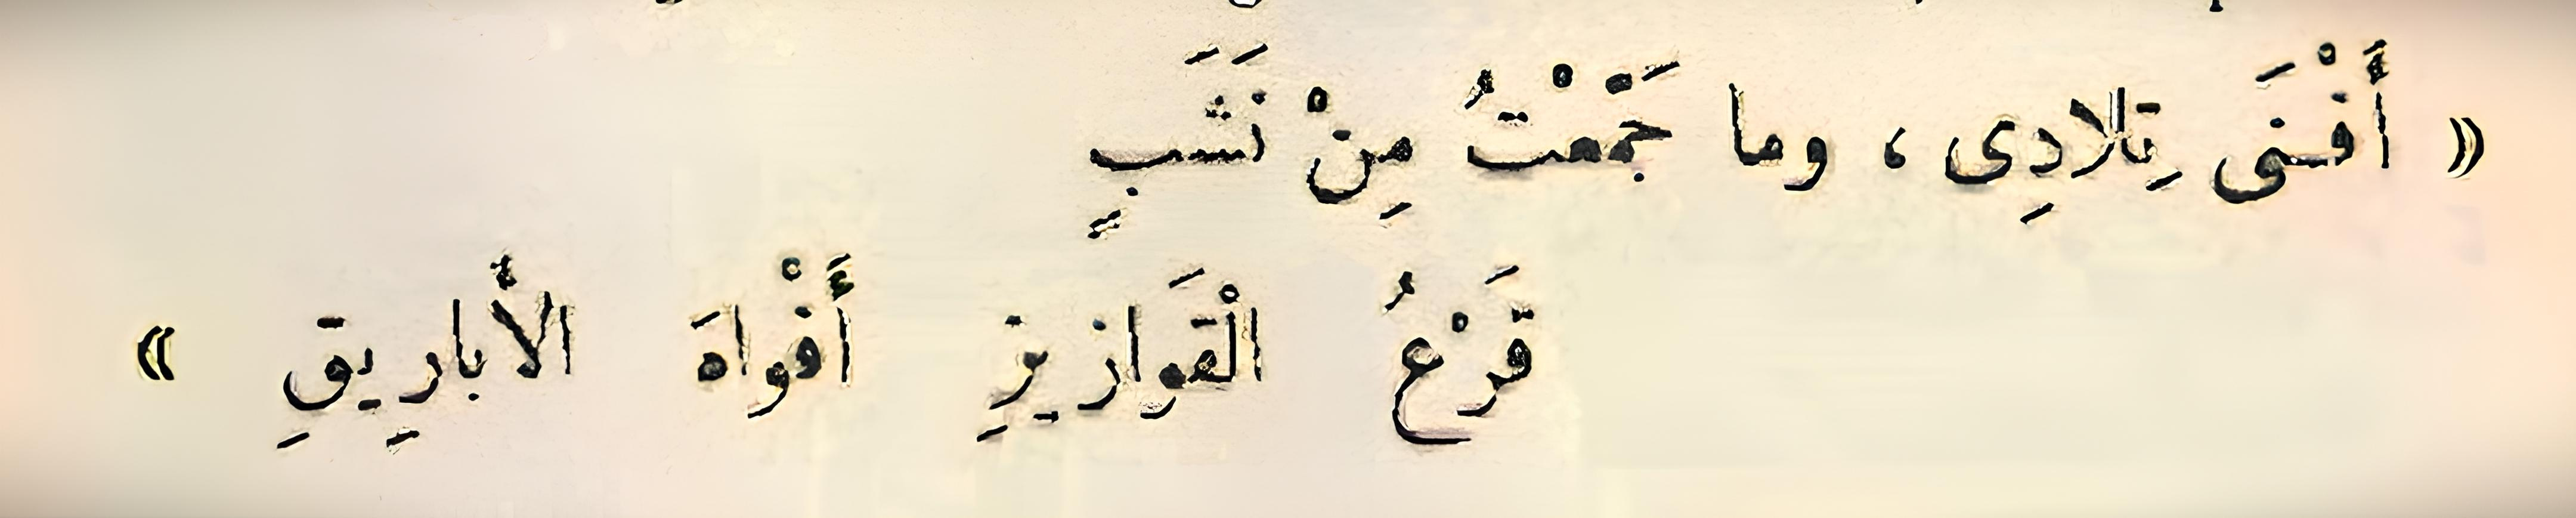 « أَفْنَى تِلادِى ، وما جَمَّعْتُ مِنْ نَشَبٍ
قَرْعُ الْقَوازيزِ أَفْواهَ الأبارِيقِ »